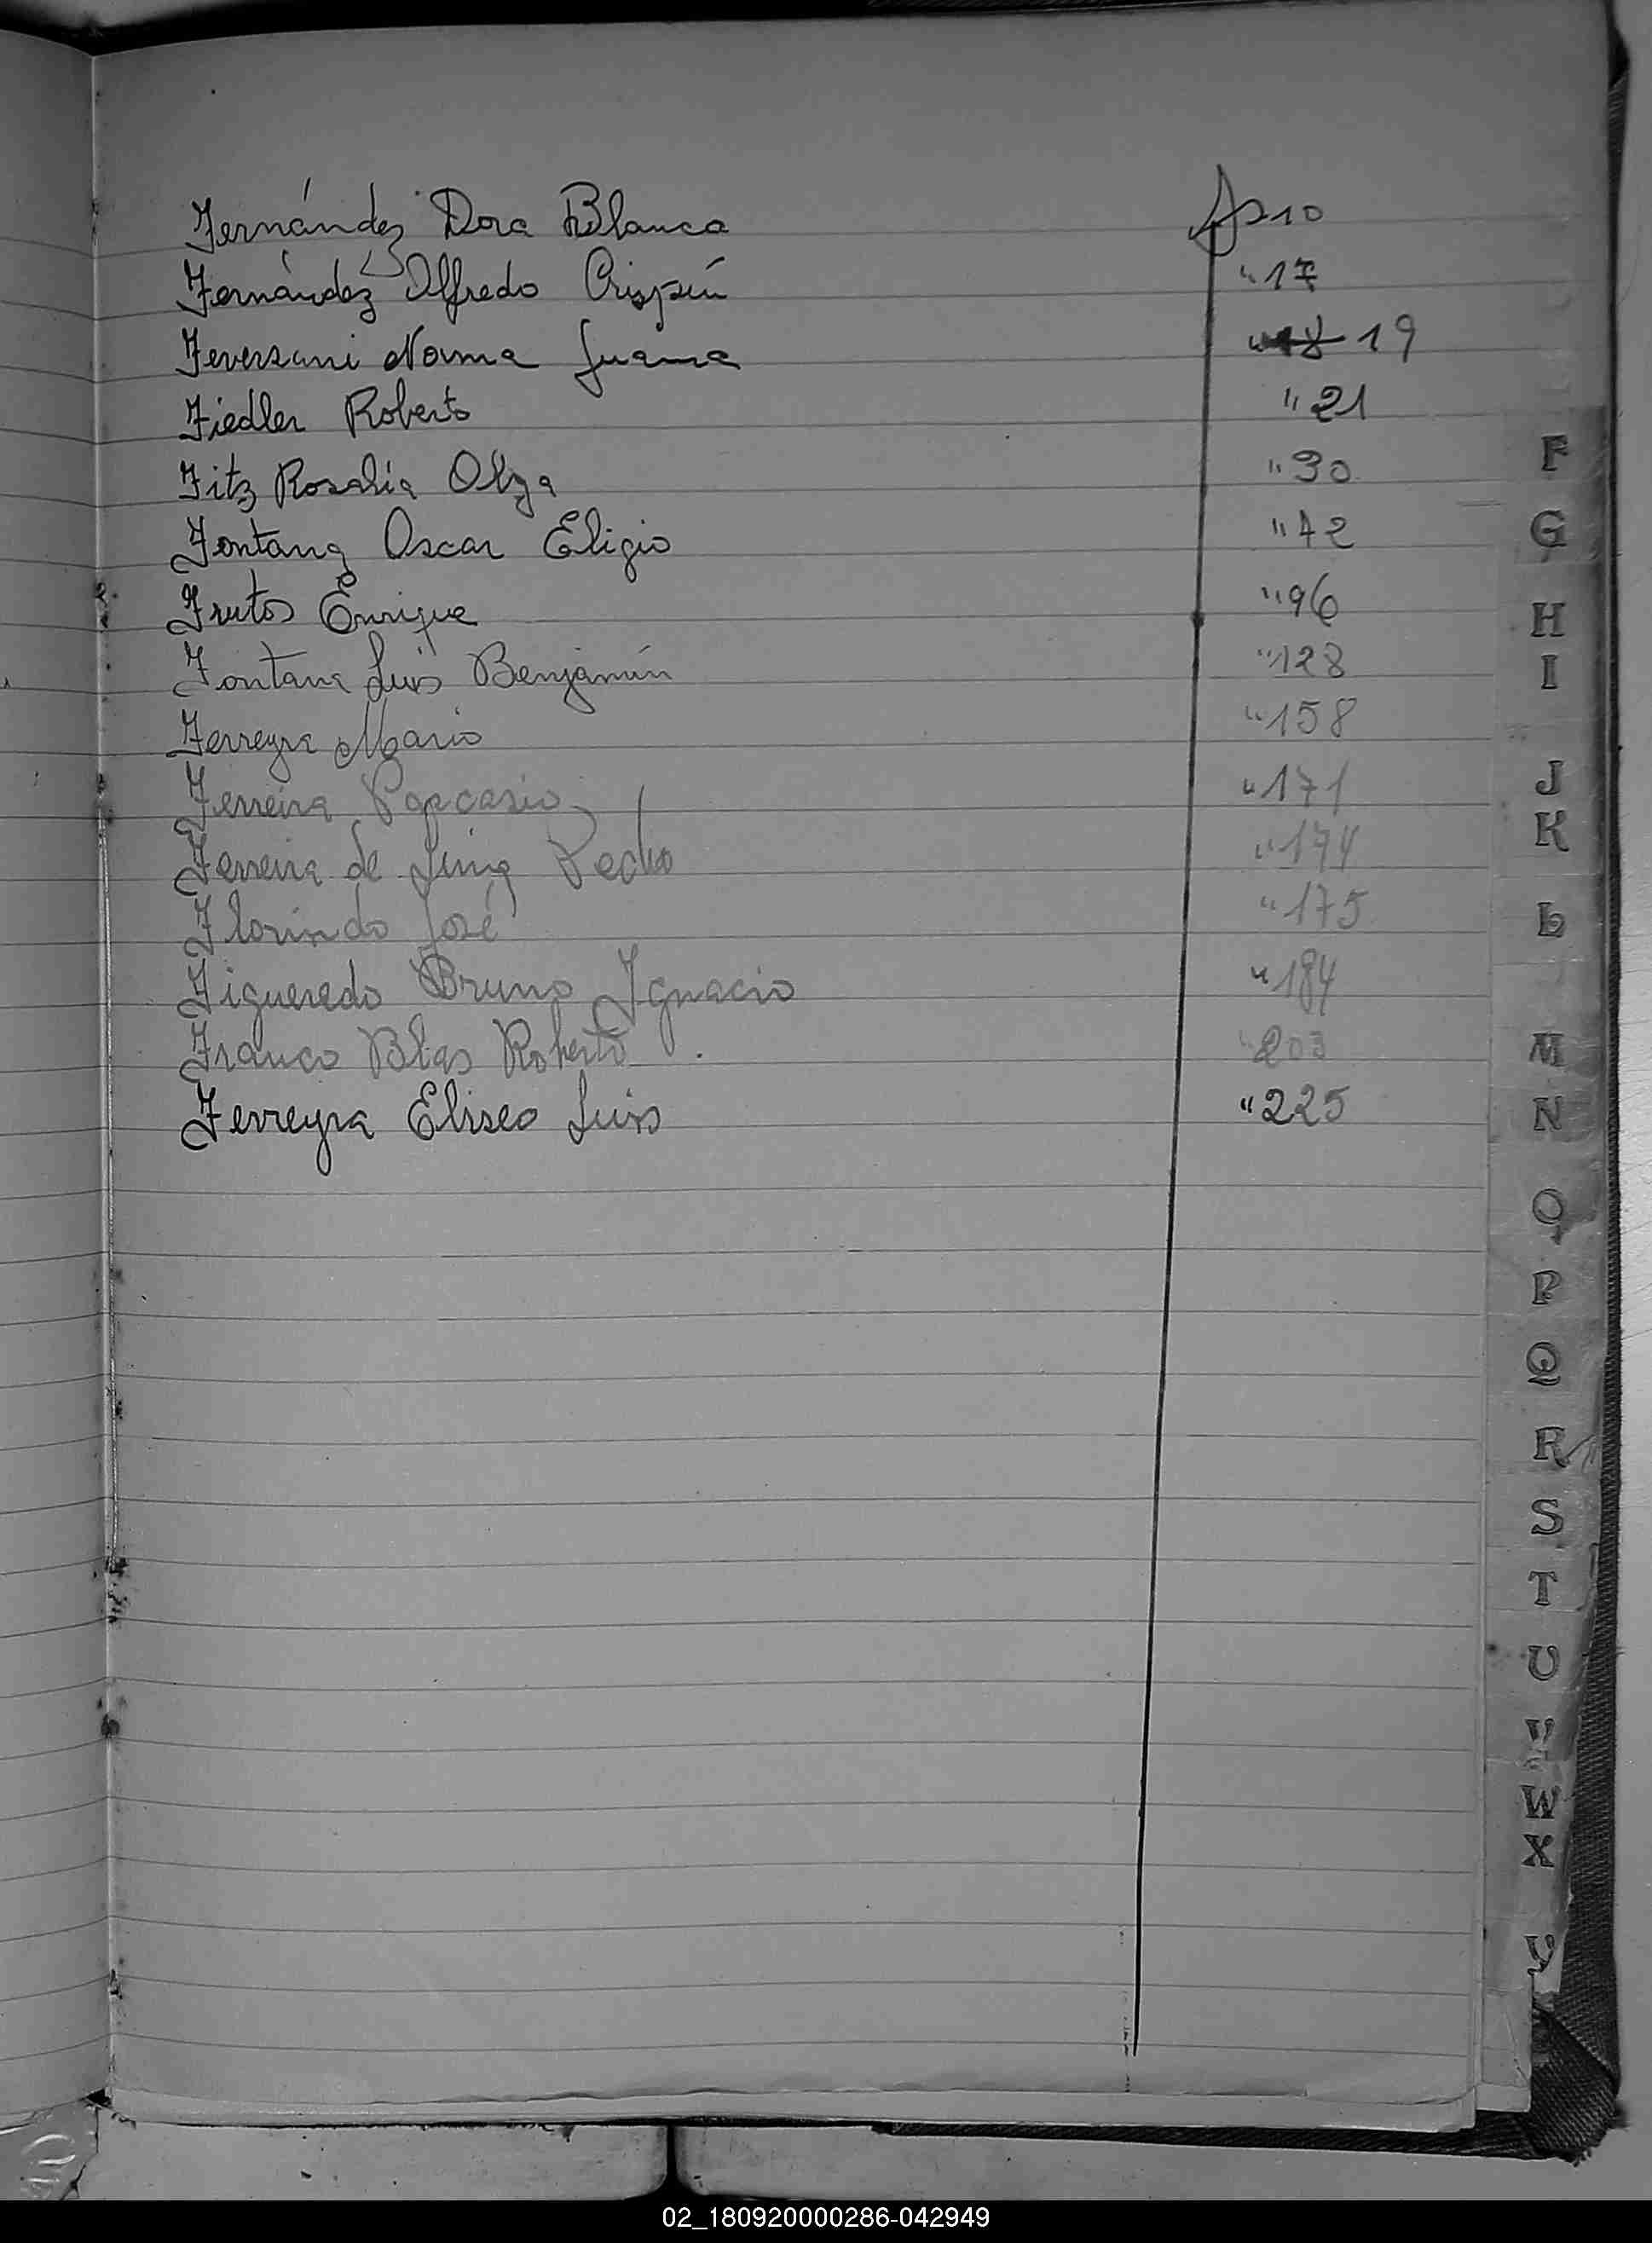 Fernández Dora Blanca Fs 10
Fernández Alfredo Crispín " 17
Feversani Norma Juana " 18 19
Fiedler Roberto " 21
Fitz Rosalia Olga " 30
Fontana Oscar Eligio " 42
Frutos Enrique " 96
Fontana Luis Benjamín " 128
Ferreyra Mario " 158
Ferreira " 171
Ferreira de Lima Pedro " 174
Florindo José " 175
Figueredo Bruno Ignacio " 184
Franco Blas Roberto " 203
Ferreyra Eliseo Luis " 225
F
G
H
I
J
K
L
M
N
O
P
Q
R
S
T
U
V
W
X
Y
02_180920000286-042949